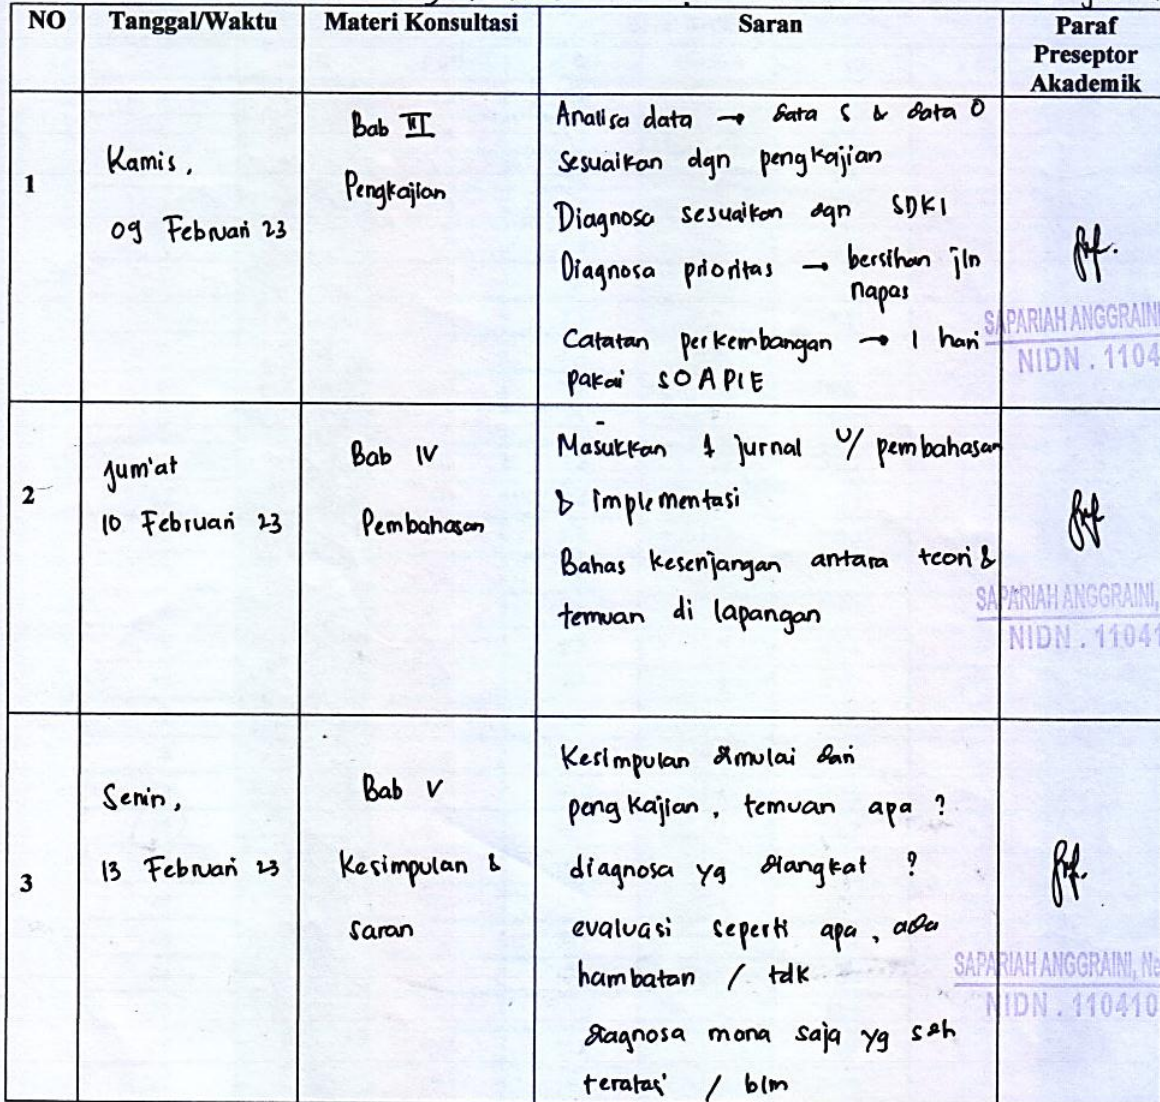 NO Tanggal/Waktu Materi Konsultasi Saran Paraf
Preseptor
Akademik
1
Kamis,
09 Februari 23
Bab III
Pengkajian
Analisa data → data S & data O
Sesuaikan dgn pengkajian
Diagnosa sesuaikan dgn SDKI
Diagnosa prioritas → bersihan jln
napas
Catatan perkembangan → 1 hari
pakai SOAPIE
SAPARIAH ANGGRAINI
NIDN . 1104
2
Jum'at
10 Februari 23
Bab IV
Pembahasan
Masukkan 1 jurnal U/ pembahasan
& implementasi
Bahas kesenjangan antara teori &
temuan di lapangan
SAPARIAH ANGGRAINI,
NIDN . 11041
3
Senin,
13 Februari 23
Bab V
Kesimpulan &
saran
Kesimpulan dimulai dari
pengkajian, temuan apa ?
diagnosa yg diangkat ?
evaluasi seperti apa, ada
hambatan / tdk
diagnosa mana saja yg sdh
teratasi / blm
SAPARIAH ANGGRAINI, Ne
NIDN . 110410